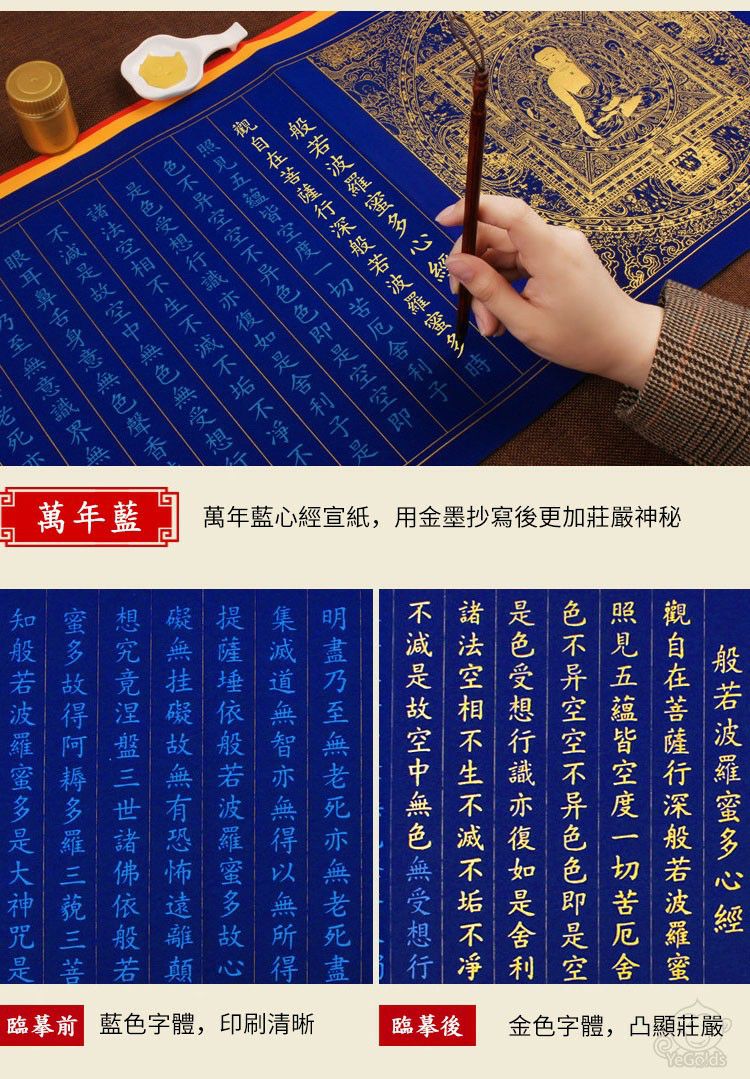 般若波羅蜜多心經
觀自在菩薩行深般若波羅蜜多時
照見五蘊皆空度一切苦厄舍利子
色不异空空不异色色即是空空即
是色受想行識亦復如是舍利子是
諸法空相不生不滅不垢不淨不
不減是故空中無色無受想行
眼耳鼻舌身意無色聲香
乃至無意識界無
老死亦
萬年藍
萬年藍心經宣紙，用金墨抄寫後更加莊嚴神秘
明盡乃至無老死亦無老死盡
集滅道無智亦無得以無所得
提薩埵依般若波羅蜜多故心
礙無挂礙故無有恐怖遠離顛
想究竟涅盤三世諸佛依般若
蜜多故得阿耨多羅三藐三菩
知般若波羅蜜多是大神咒是
般若波羅蜜多心經
觀自在菩薩行深般若波羅蜜
照見五蘊皆空度一切苦厄舍
色不异空空不异色色即是空
是色受想行識亦復如是舍利
諸法空相不生不滅不垢不淨
不減是故空中無色無受想行
臨摹前
藍色字體，印刷清晰
臨摹後
金色字體，凸顯莊嚴
YeGolds